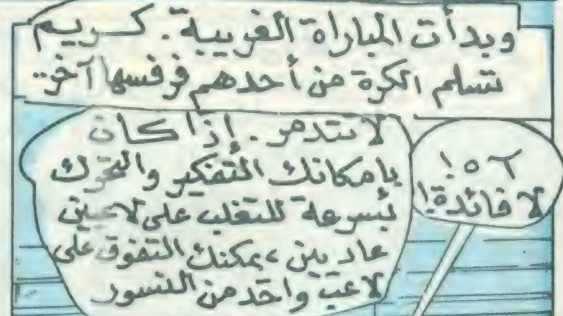 وبدأت المباراة الغريبة. كريم
تسلم الكرة من أحدهم فرفسها آخر..
٥٦!
لا فائدة!
لا تتدمر. إذا كان
بإمكانك التفكير والتحرك
بسرعة للتغلب على لاعبين
عاديين، يمكنك التفوق على
لاعب واحد من النسور